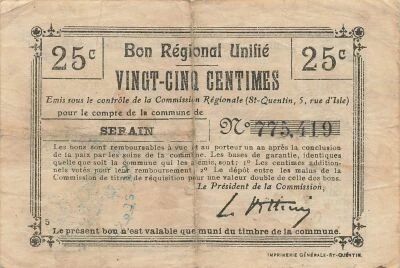 25c Bon Régional Unifié 25c
VINGT-CINQ CENTIMES
Emis sous le contrôle de la Commission Régionale (St-Quentin, 5, rue d'Isle)
pour le compte de la commune de
SERAIN No 775,419
Les bons sont remboursables à vue et au porteur un an après la conclusion
de la paix par les soins de la commune. Les bases de garantie, identiques
quelle que soit la commune qui les a émis, sont : 1° Les centimes addition-
nels votés pour leur remboursement ; 2° Le dépôt entre les mains de la
Commission de titres de réquisition pour une valeur double de celle des bons.
Le Président de la Commission,
5
Le présent bon n'est valable que muni du timbre de la commune.
IMPRIMERIE GÉNÉRALE-ST-QUENTIN.